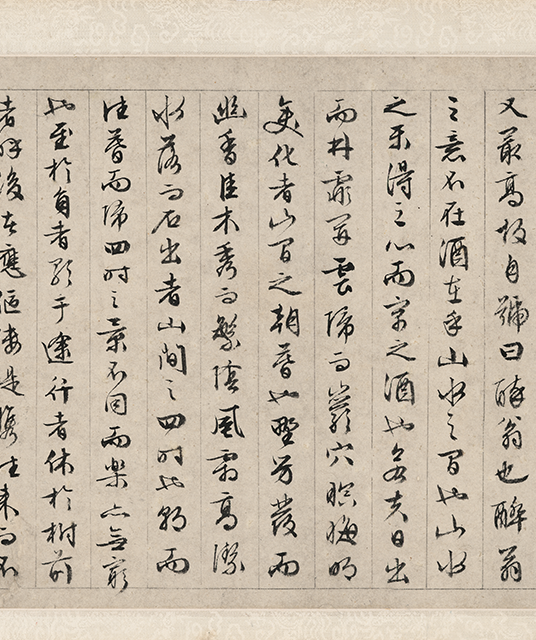 又最高故自號曰醉翁也醉翁
之意不在酒在乎山水之間也山水
之樂得之心而寓之酒也若夫日出
而林霏開雲歸而巖穴暝晦明
變化者山間之朝暮也野芳發而
幽香佳木秀而繁陰風霜高潔
水落而石出者山間之四時也朝而
往暮而歸四時之景不同而樂亦無窮
也至於負者歌于途行者休於樹前
者呼後者應傴僂提攜往來而不